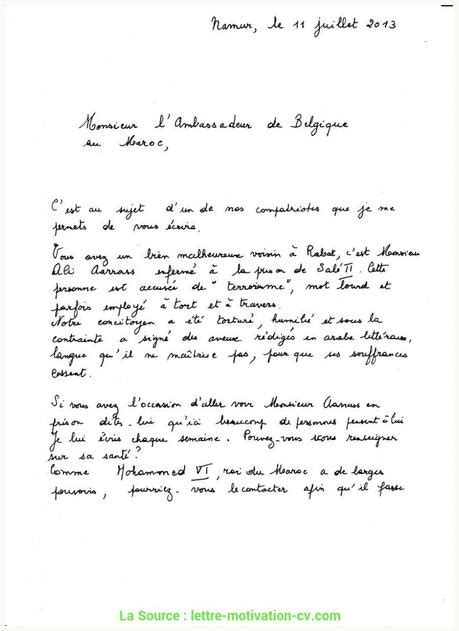 Namur, le 11 juillet 2013
Monsieur l'Ambassadeur de Belgique
au Maroc,
C'est au sujet d'un de nos compatriotes que je me
permets de vous écrire.
Vous avez un bien malheureux voisin à Rabat, c'est Monsieur
Ali Aarrass enfermé à la prison de Salé II. Cette
personne est accusée de "terrorisme", mot lourd et
parfois employé à tort et à travers.
Notre concitoyen a été torturé, humilié et sous la
contrainte a signé des aveux rédigés en arabe littéraire,
langue qu'il ne maîtrise pas, pour que ses souffrances
cessent.
Si vous avez l'occasion d'aller voir Monsieur Aarrass en
prison dites-lui qu'ici beaucoup de personnes pensent à lui
Je lui écris chaque semaine. Pouvez-vous nous renseigner
sur sa santé?
Comme Mohamed VI, roi du Maroc a de larges
pouvoirs, pourriez-vous le contacter afin qu'il fasse
La Source : lettre-motivation-cv.com